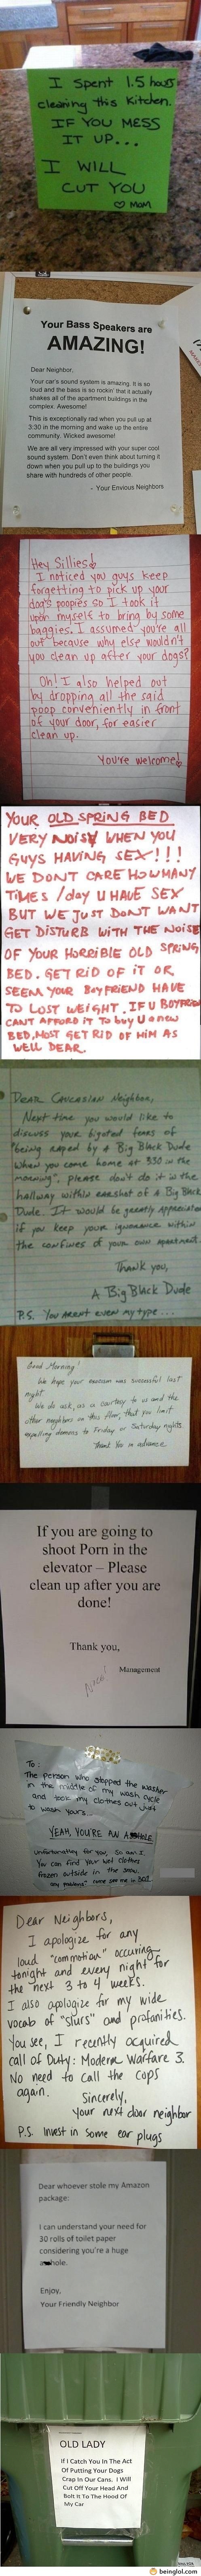 I Spent 1.5 hours
cleaning this Kitchen.
IF YOU MESS
IT UP...
I WILL
CUT YOU
♡ Mom
Your Bass Speakers are
AMAZING!
Dear Neighbor,
Your car's sound system is amazing. It is so
loud and the bass is so rockin' that it actually
shakes all of the apartment buildings in the
complex. Awesome!
This is exceptionally rad when you pull up at
3:30 in the morning and wake up the entire
community. Wicked awesome!
We are all very impressed with your super cool
sound system. Don't even think about turning it
down when you pull up to the buildings you
share with hundreds of other people.
- Your Envious Neighbors
Hey Sillies!
I noticed you guys keep
forgetting to pick up your
dog's poopies so I took it
upon myself to bring by some
baggies. I assumed you're all
out because why else wouldn't
you clean up after your dogs?
Oh! I also helped out
by dropping all the said
poop conveniently in front
of your door, for easier
clean up.
You're welcome!
YOUR OLD SPRING BED
VERY NOISY WHEN YOU
GUYS HAVING SEX!!!
WE DONT CARE HOW MANY
TIMES /day U HAVE SEX
BUT WE JUST DONT WANT
GET DISTURB WITH THE NOISE
OF YOUR HORRIBLE OLD SPRING
BED. GET RID OF IT OR
SEEM YOUR BOYFRIEND HAVE
TO LOST WEIGHT. IF U BOYFRIEND
CANT AFFORD IT TO buy U a new
BED, MOST GET RID OF HIM AS
WELL DEAR.
Dear Caucasian Neighbor,
Next time you would like to
discuss your bigoted fears of
"being raped by a Big Black Dude
when you come home at 3:30 in the
morning", please don't do it in the
hallway within earshot of a Big Black
Dude. It would be greatly appreciated
if you keep your ignorance within
the confines of your own apartment.
Thank you,
A Big Black Dude
P.S. You aren't even my type...
Good Morning!
We hope your exorcism was successful last
night.
We do ask, as a courtesy to us and the
other neighbors on this floor, that you limit
expelling demons to Friday or Saturday nights.
Thank You in advance
If you are going to
shoot Porn in the
elevator – Please
clean up after you are
done!
Thank you,
Management
Nice!
To:
The person who stopped the washer
in the middle of my wash cycle
and took my clothes out just
to wash yours...
YEAH, YOU'RE AN A HOLE
unfortunately for you, so am I.
You can find your wet clothes
frozen outside in the snow.
any problems? come see me in
Dear Neighbors,
I apologize for any
loud "commotion" occuring
tonight and every night for
the next 3 to 4 weeks.
I also apologize for my wide
vocab of "slurs" and profanities.
You see, I recently acquired
Call of Duty: Modern Warfare 3.
No need to call the cops
again.
Sincerely,
Your next door neighbor
P.S. Invest in some ear plugs
Dear whoever stole my Amazon
package:
I can understand your need for
30 rolls of toilet paper
considering you're a huge
a hole.
Enjoy,
Your Friendly Neighbor
OLD LADY
If I Catch You In The Act
Of Putting Your Dogs
Crap In Our Cans. I Will
Cut Off Your Head And
Bolt It To The Hood Of
My Car
beinglol.com